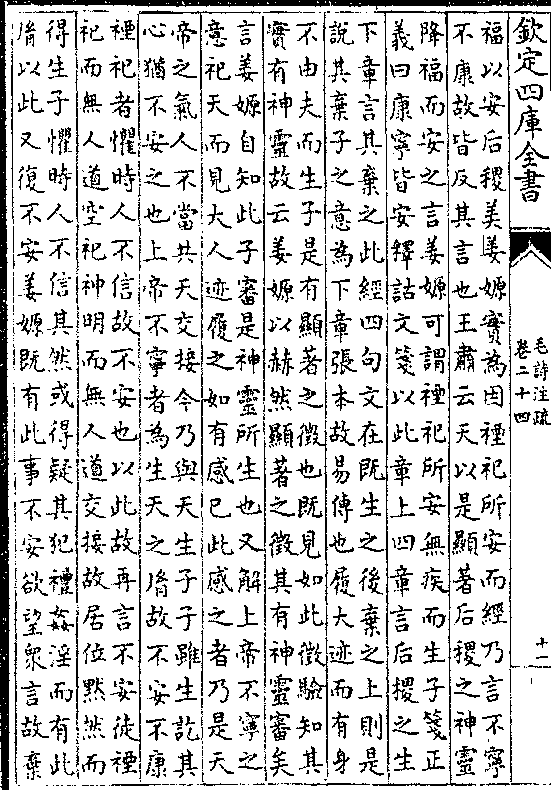 欽定四庫全書
毛詩注疏
卷二十四
十一
福以安后稷美姜嫄實為因禋祀所安而經乃言不寧
不康故皆反其言也王肅云天以是顯著后稷之神靈
降福而安之言姜嫄可謂禋祀所安無疾而生子箋正
義曰康寧皆安釋詁文箋以此章上四章言后稷之生
下章言其棄之此經四句文在既生之後棄之上則是
說其棄子之意為下章張本故易傳也履大迹而有身
不由夫而生子是有顯著之徵也既見如此徵驗知其
實有神靈故云姜嫄以赫然顯著之徵其有神靈審矣
言姜嫄自知此子審是神靈所生也又解上帝不寧之
意祀天而見大人迹履之如有感已此感之者乃是天
帝之氣人不當共天交接今乃與天生子子雖生訖其
心猶不安之也上帝不寧者為生天之胤故不安不康
禋祀者懼時人不信故不安也以此故再言不安徒禋
祀而無人道空祀神明而無人道交接故居位默然而
得生子懼時人不信其然或得疑其犯禮姦淫而有此
胤以此又復不安姜嫄既有此事不安欲望衆言故棄